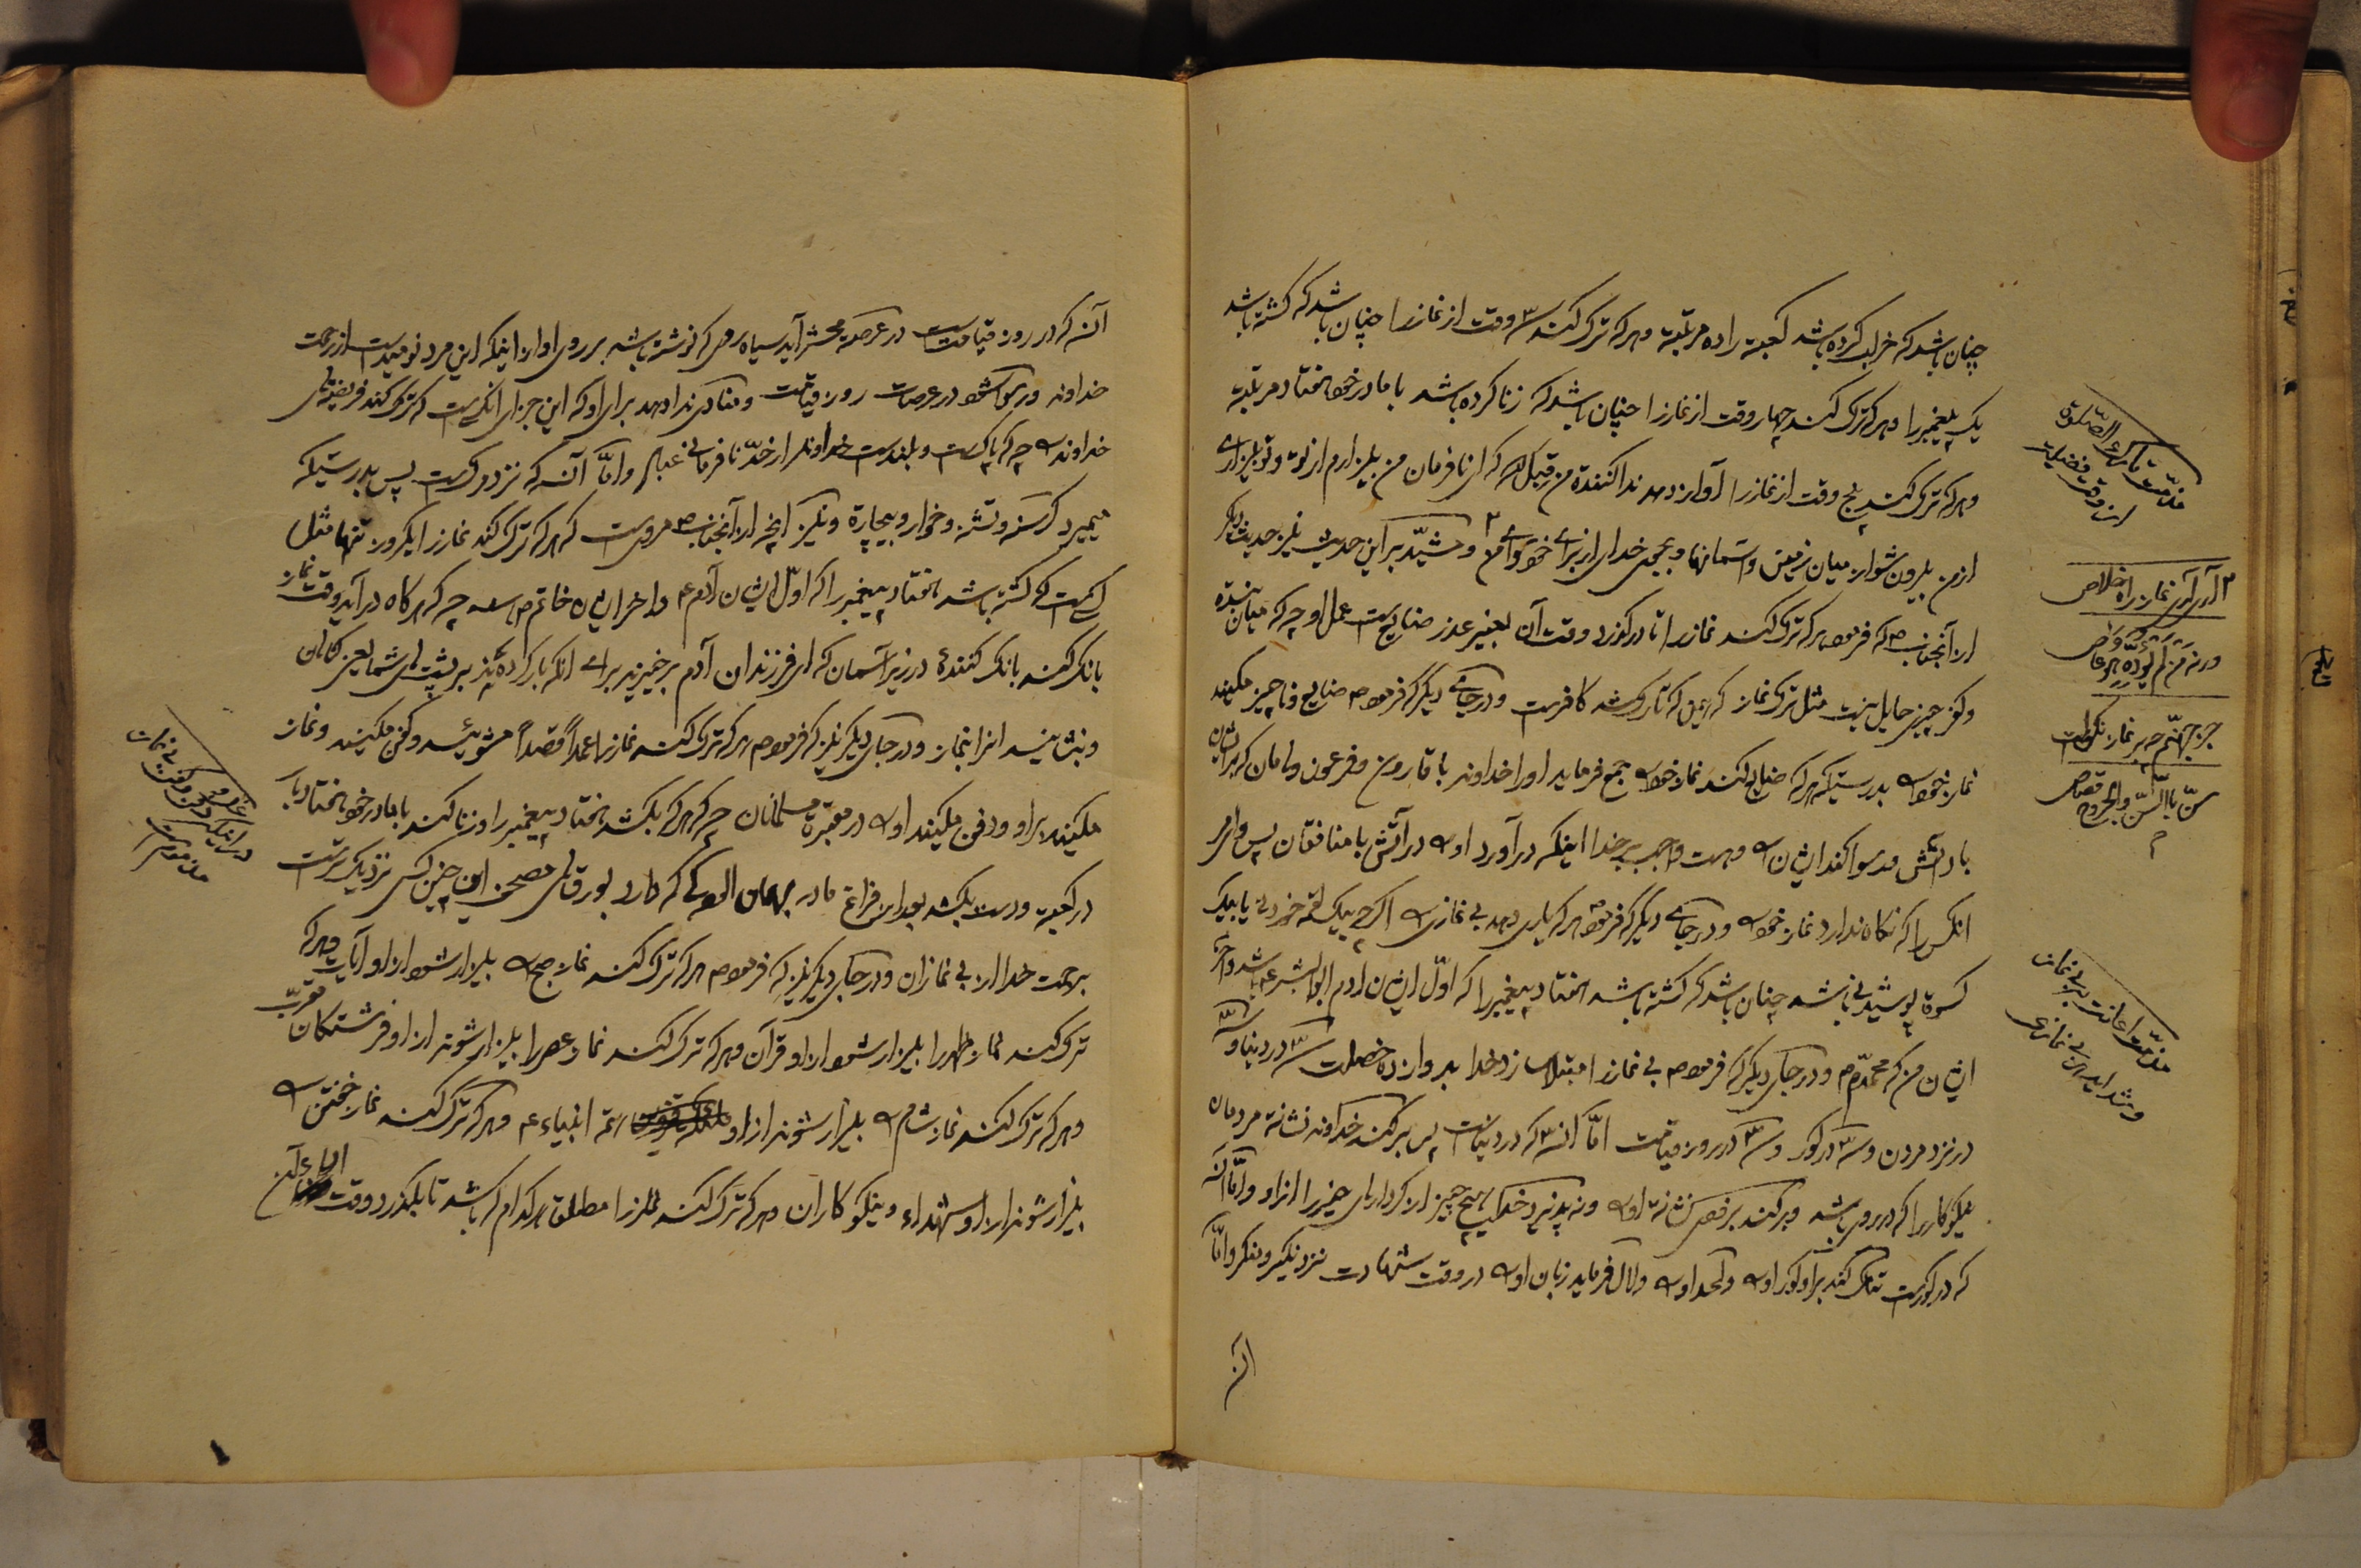 چنان باشد که خراب کرده باشد کعبه را ده مرتبه و هر که ترک کند سه وقت از نماز را چنان باشد که کشته باشد
یک پیغمبر را و هر که ترک کند چهار وقت از نماز را چنان باشد که زنا کرده باشد با مادر خود هفتاد مرتبه
و هر که ترک کند پنج وقت از نماز را آواز دهد ندا کننده من قبل الله که ای نافرمان من بیزارم از تو و تو بیزاری
از من بیرون شو از میان زمین و آسمانها و بجوی خدای از برای خود سوای من و مشید بر این حدیث نیز حدیث دیگر
از آنجناب ص که فرمود هر که ترک کند نماز را تا در گذرد وقت آن بغیر عذر ضایع است عمل او چه که میان بنده
و کفر چیزی حایل نیست مثل ترک نماز که تارکش کافر است و در جای دیگر که فرمود ص ضایع و ناچیز مکنید
نماز خود را بدرستیکه هر که ضایع کند نماز خود را جمع فرماید او را خداوند با قارون و فرعون و هامان که برایشان
باد آتش و رسوا کند ایشان را و هست واجب بر خدا اینکه در آورد او را در آتش با منافقان پس وای بر
آنکس را که نگاه ندارد نماز خود را و در جای دیگر که فرمود ص هر که یاری دهد بی نمازی را اگر چه بیک لقمه خوردنی یا بیک
کسوة پوشیدنی باشد چنان باشد که کشته باشد هفتاد پیغمبر را که اول ایشان آدم ابو البشر ع باشد و آخر
ایشان من که محمدم و در جای دیگر که فرمود ص بی نماز را مبتلا سازد خدا بدوازده خصلت سه در دنیا و سه
در نزد مردن و سه در گور و سه در روز قیامت اما آن سه که در دنیاست پس بر کند خداوند نشانه مردمان
نیکوکار را که در روی باشد و بر کند برفض نشانه او را و نپذیرد خدای هیچ چیز از کردارهای خیر را از او و اما آن
که در گور است تنگ کند بر او گور او را و لحد او را و لال فرماید زبان او را در وقت شهادت نزد نکیر و منکر و اما
آن
مذمت تارک الصلوة
از وقت فضیلت
آر آر نماز را اخلاص
ورنه من لم یؤده
جز جهنم چه بر نماز نکوست
سن بالسن والجروح قصاص
مذمت اعانت بر بی نماز
و شداید این بی نمازی
آن که در روز قیامت در عرصه محشر آید سیاه روی که نوشته باشد بر روی او از اینکه این مرد نومید است از رحمت
خداوند و رسوا شود در عرصات روز قیامت و منادی ندا دهد برای او که این جزای آنکس است که ترک کند فریضهای
خداوند را چه که پاکست و بلند است خداوند از حد نافرمانی عباد و اما آن که نزد مرگست پس بدرستیکه
میمیرد گرسنه و تشنه و خوار و بیچاره و نیز آنچه از آنجناب ص مرویست که هر که ترک کند نماز را یک روز تنها مثل
کسیست که کشته باشد هفتاد پیغمبر را که اول ایشان آدم ع و آخر ایشان خاتم ص باشد چه که هر گاه در آید وقت نماز
بانک کند بانک کنندۀ در زیر آسمان که ای فرزندان آدم برخیزید برای آنکه بار کرده اید بر پشتهای شما یعنی گناهان
و بنشانید آنرا بنماز و در جای دیگر نیز که فرمود ص هر که ترک کند نماز را عمداً قصداً مشوئید و کفن مکنید و نماز
مکنید بر او و دفن مکنید او را در مقبره مسلمانان چه که هر که بکشد هفتاد پیغمبر را و زنا کند با مادر خود هفتاد بار
در کعبه و دست بکشد بعد از فراغ مادر بهمان آلودگی که دارد بورقهای مصحف این چنین کس نزدیکتر است
برحمت خدا از بی نمازان و در جای دیگر نیز که فرمود ص هر که ترک کند نماز صبح را بیزار شود از او آیات و هر که
ترک کند نماز ظهر را بیزار شود از او قرآن و هر که ترک کند نماز عصر را بیزار شوند از او فرشتگان مقرب
و هر که ترک کند نماز شام را بیزار شوند از او همه انبیاء ع و هر که ترک کند نماز خفتن را
بیزار شوند از او شهداء و نیکوکاران و هر که ترک کند نماز را مطلق هر کدام که باشد تا بگذرد وقت
در اینکه دفن و کفن بی نماز
مذموم است